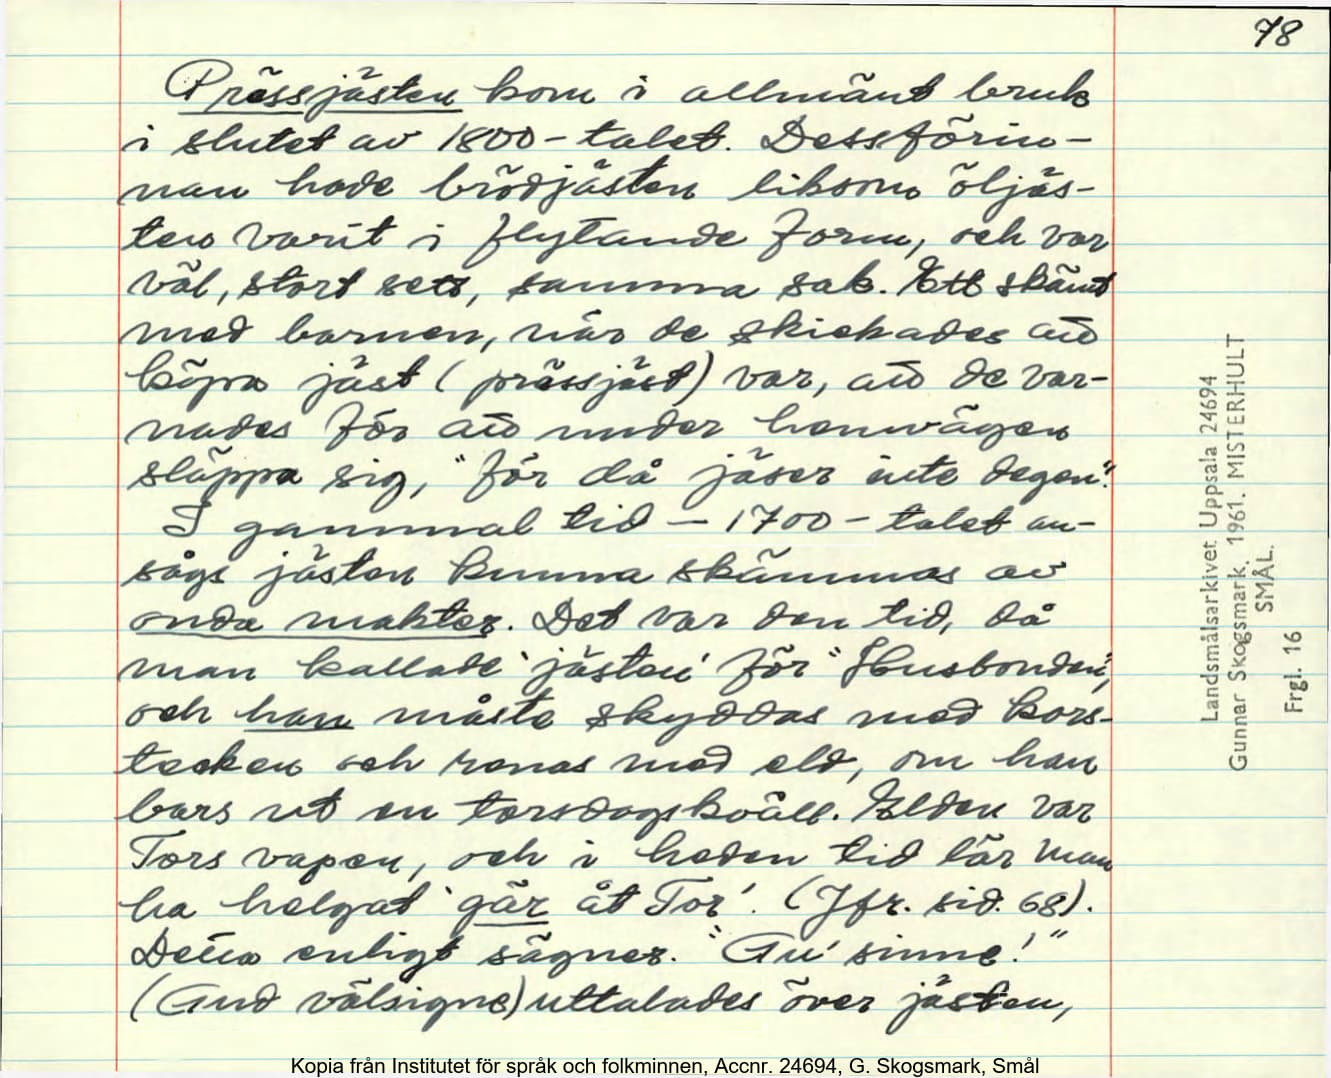 78
Prässjästen kom i allmänt bruk
i slutet av 1800-talet. Dessförin-
nan hade brödjästen liksom öljäs-
ten varit i flytande form, och var
väl, stort sett, samma sak. Ett skämt
med barnen, när de skickades att
köpa jäst (prässjäst) var, att de var-
nades för att under hemvägen
släppa sig, "för då jäser inte degen."
I gammal tid - 1700-talet an-
sågs jästen kunna skämmas av
onda makter. Det var den tid, då
man kallade 'jästen' för "Husbonden",
och han måste skyddas med kors-
tecken och renas med eld, om han
bars ut en torsdagskväll. Elden var
Tors vapen, och i heden tid lär man
ha helgat 'gär åt Tor'. (Jfr. sid. 68).
Detta enligt sägner. "Gu' sinne!"
(Gud välsigne) uttalades över jästen,
Landsmålsarkivet Uppsala 24694
Gunnar Skogsmark. 1961. MISTERHULT
SMÅL.
Frgl. 16
Kopia från Institutet för språk och folkminnen, Accnr. 24694, G. Skogsmark, Smål